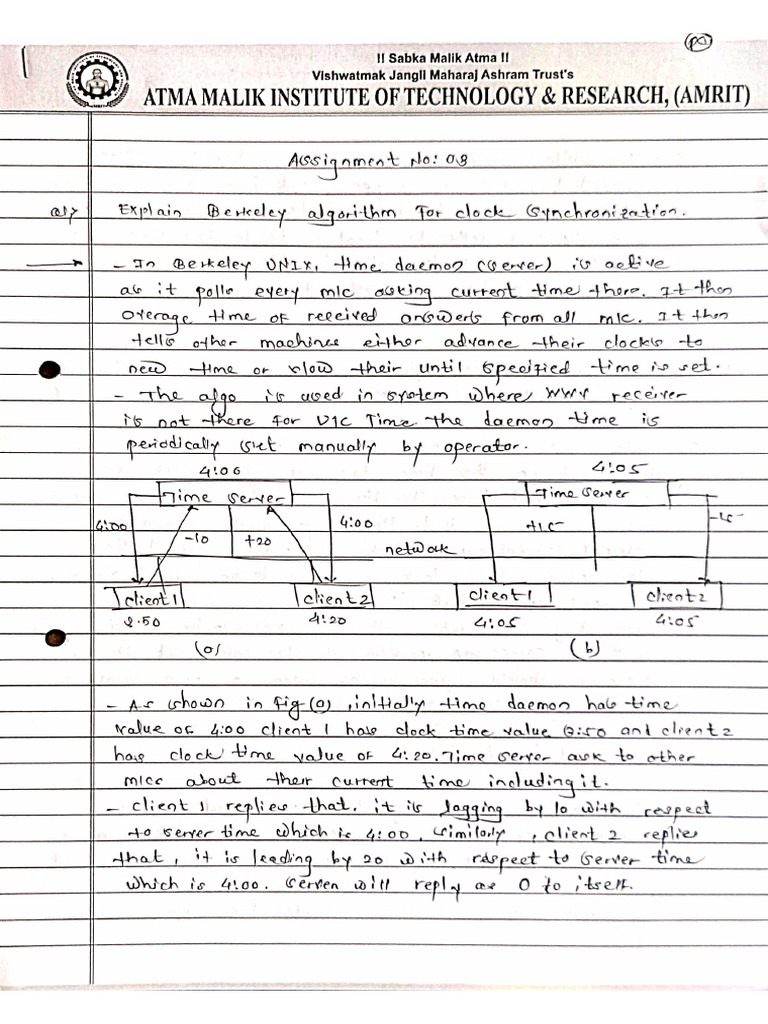 !! Sabka Malik Atma !!
Vishwatmak Jangli Maharaj Ashram Trust's
ATMA MALIK INSTITUTE OF TECHNOLOGY & RESEARCH, (AMRIT)
Assignment No: 03
Q1> Explain Berkeley algorithm for clock synchronization.
- In Berkeley UNIX, time daemon (server) is active
as it polls every m/c asking current time there. It then
average time of received answers from all m/c. It then
tells other machines either advance their clocks to
new time or slow their until specified time is set.
- The algo is used in system where WWV receiver
is not there for UTC Time. The daemon time is
periodically set manually by operator.
4:00 4:05
Time server Time server
4:00 -10 +20 4:00 +15 -15
network
Client 1 Client 2 Client 1 Client 2
2.50 4:20 4:05 4:05
(a) (b)
- As shown in fig (a), initially time daemon has time
value of 4:00 client 1 has clock time value 3:50 and client 2
has clock time value of 4:20. Time server ask to other
m/cs about their current time including it.
- client 1 replies that, it is lagging by 10 with respect
to server time which is 4:00. similarly, client 2 replie
that, it is leading by 20 with respect to server time
which is 4:00. server will reply as 0 to itself.